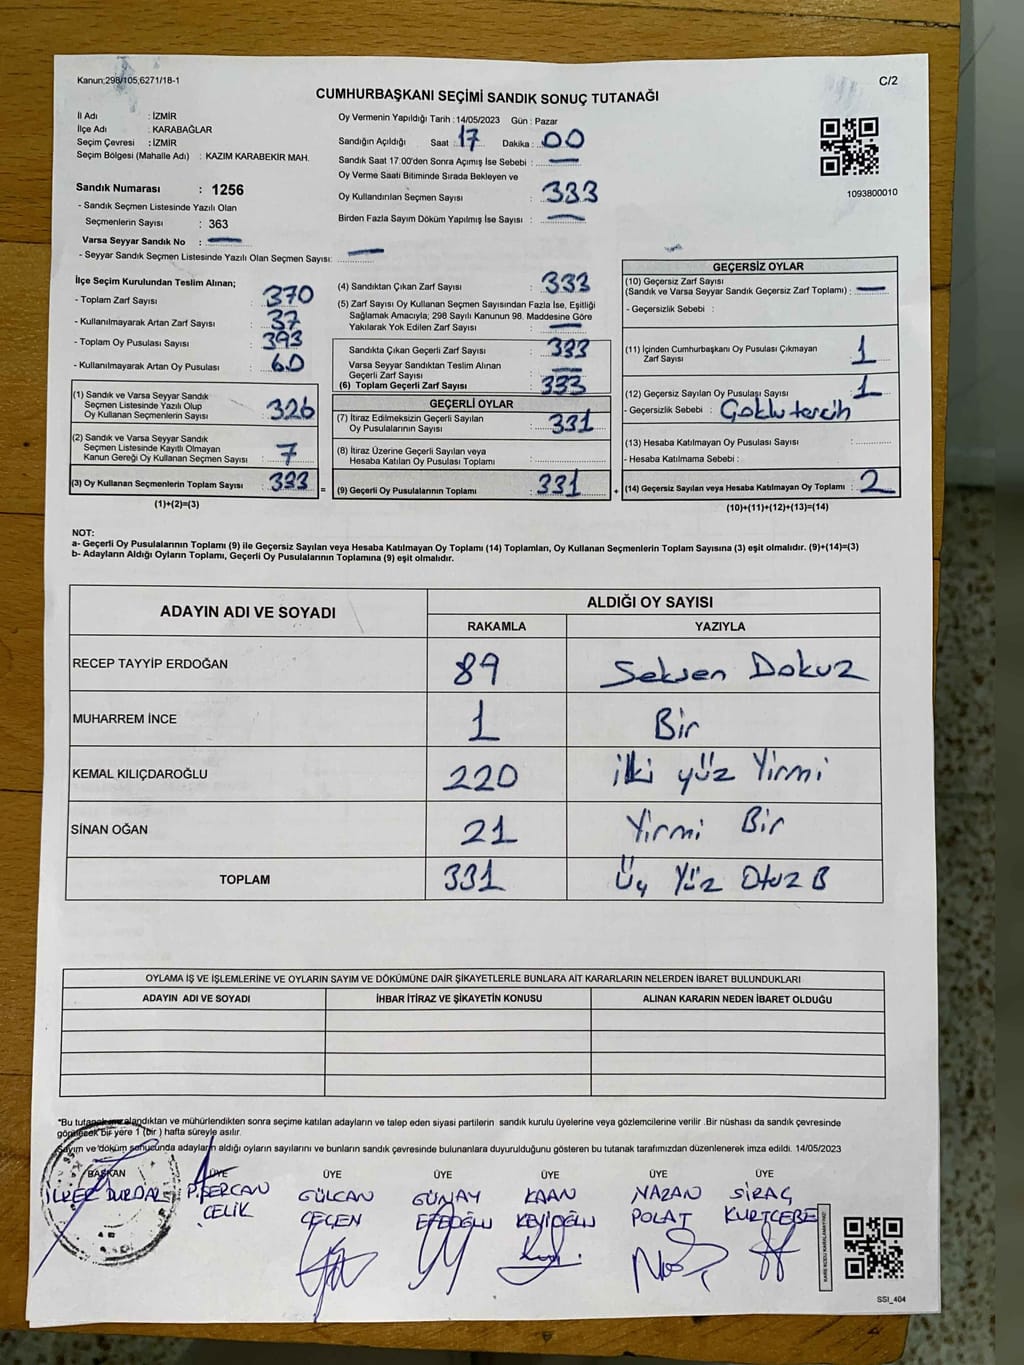 Kanun:298/105,6271/18-1
C/2
CUMHURBAŞKANI SEÇİMİ SANDIK SONUÇ TUTANAĞI
İl Adı : İZMİR
İlçe Adı : KARABAĞLAR
Seçim Çevresi : İZMİR
Seçim Bölgesi (Mahalle Adı) : KAZIM KARABEKİR MAH.
Sandık Numarası : 1256
- Sandık Seçmen Listesinde Yazılı Olan
Seçmenlerin Sayısı : 363
Varsa Seyyar Sandık No : —
- Seyyar Sandık Seçmen Listesinde Yazılı Olan Seçmen Sayısı: —
Oy Vermenin Yapıldığı Tarih :14/05/2023 Gün : Pazar
Sandığın Açıldığı Saat : 17 Dakika : 00
Sandık Saat 17:00'den Sonra Açımış İse Sebebi : —
Oy Verme Saati Bitiminde Sırada Bekleyen ve
Oy Kullandırılan Seçmen Sayısı : 333
Birden Fazla Sayım Döküm Yapılmış İse Sayısı : —
1093800010
İlçe Seçim Kurulundan Teslim Alınan;
- Toplam Zarf Sayısı : 370
- Kullanılmayarak Artan Zarf Sayısı : 37
- Toplam Oy Pusulası Sayısı : 393
- Kullanılmayarak Artan Oy Pusulası : 60
(1) Sandık ve Varsa Seyyar Sandık
Seçmen Listesinde Yazılı Olup
Oy Kullanan Seçmenlerin Sayısı : 326
(2) Sandık ve Varsa Seyyar Sandık
Seçmen Listesinde Kayıtlı Olmayan
Kanun Gereği Oy Kullanan Seçmen Sayısı : 7
(3) Oy Kullanan Seçmenlerin Toplam Sayısı : 333 =
(1)+(2)=(3)
(4) Sandıktan Çıkan Zarf Sayısı : 333
(5) Zarf Sayısı Oy Kullanan Seçmen Sayısından Fazla İse, Eşitliği
Sağlamak Amacıyla; 298 Sayılı Kanunun 98. Maddesine Göre
Yakılarak Yok Edilen Zarf Sayısı : —
Sandıkta Çıkan Geçerli Zarf Sayısı : 333
Varsa Seyyar Sandıktan Teslim Alınan
Geçerli Zarf Sayısı : —
(6) Toplam Geçerli Zarf Sayısı : 333
GEÇERLİ OYLAR
(7) İtiraz Edilmeksizin Geçerli Sayılan
Oy Pusulalarının Sayısı : 331
(8) İtiraz Üzerine Geçerli Sayılan veya
Hesaba Katılan Oy Pusulası Toplamı :
(9) Geçerli Oy Pusulalarının Toplamı : 331 +
GEÇERSİZ OYLAR
(10) Geçersiz Zarf Sayısı
(Sandık ve Varsa Seyyar Sandık Geçersiz Zarf Toplamı) : —
- Geçersizlik Sebebi :
(11) İçinden Cumhurbaşkanı Oy Pusulası Çıkmayan
Zarf Sayısı : 1
(12) Geçersiz Sayılan Oy Pusulası Sayısı : 1
- Geçersizlik Sebebi : Çoklu tercih
(13) Hesaba Katılmayan Oy Pusulası Sayısı :
- Hesaba Katılmama Sebebi :
(14) Geçersiz Sayılan veya Hesaba Katılmayan Oy Toplamı : 2
(10)+(11)+(12)+(13)=(14)
NOT:
a- Geçerli Oy Pusulalarının Toplamı (9) ile Geçersiz Sayılan veya Hesaba Katılmayan Oy Toplamı (14) Toplamları, Oy Kullanan Seçmenlerin Toplam Sayısına (3) eşit olmalıdır. (9)+(14)=(3)
b- Adayların Aldığı Oyların Toplamı, Geçerli Oy Pusulalarının Toplamına (9) eşit olmalıdır.
ADAYIN ADI VE SOYADI ALDIĞI OY SAYISI
RAKAMLA YAZIYLA
RECEP TAYYİP ERDOĞAN 89 Seksen Dokuz
MUHARREM İNCE 1 Bir
KEMAL KILIÇDAROĞLU 220 iki yüz Yirmi
SİNAN OĞAN 21 Yirmi Bir
TOPLAM 331 Üç Yüz Otuz B
OYLAMA İŞ VE İŞLEMLERİNE VE OYLARIN SAYIM VE DÖKÜMÜNE DAİR ŞİKAYETLERLE BUNLARA AİT KARARLARIN NELERDEN İBARET BULUNDUKLARI
ADAYIN ADI VE SOYADI İHBAR İTİRAZ VE ŞİKAYETİN KONUSU ALINAN KARARIN NEDEN İBARET OLDUĞU
*Bu tutanak imzalandıktan ve mühürlendikten sonra seçime katılan adayların ve talep eden siyasi partilerin sandık kurulu üyelerine veya gözlemcilerine verilir .Bir nüshası da sandık çevresinde
görülecek bir yere 1 (bir ) hafta süreyle asılır.
Sayım ve döküm sonucunda adayların aldığı oyların sayılarını ve bunların sandık çevresinde bulunanlara duyurulduğunu gösteren bu tutanak tarafımızdan düzenlenerek imza edildi. 14/05/2023
BAŞKAN ÜYE ÜYE ÜYE ÜYE ÜYE ÜYE
P.SERCAN GÜLCAN GÜNAY KAAN NAZAN SİRAÇ
ÇELİK ÇEÇEN EFEOĞLU POLAT KURTCEBE
KARE KODU KARALAMAYINIZ
SSI_404